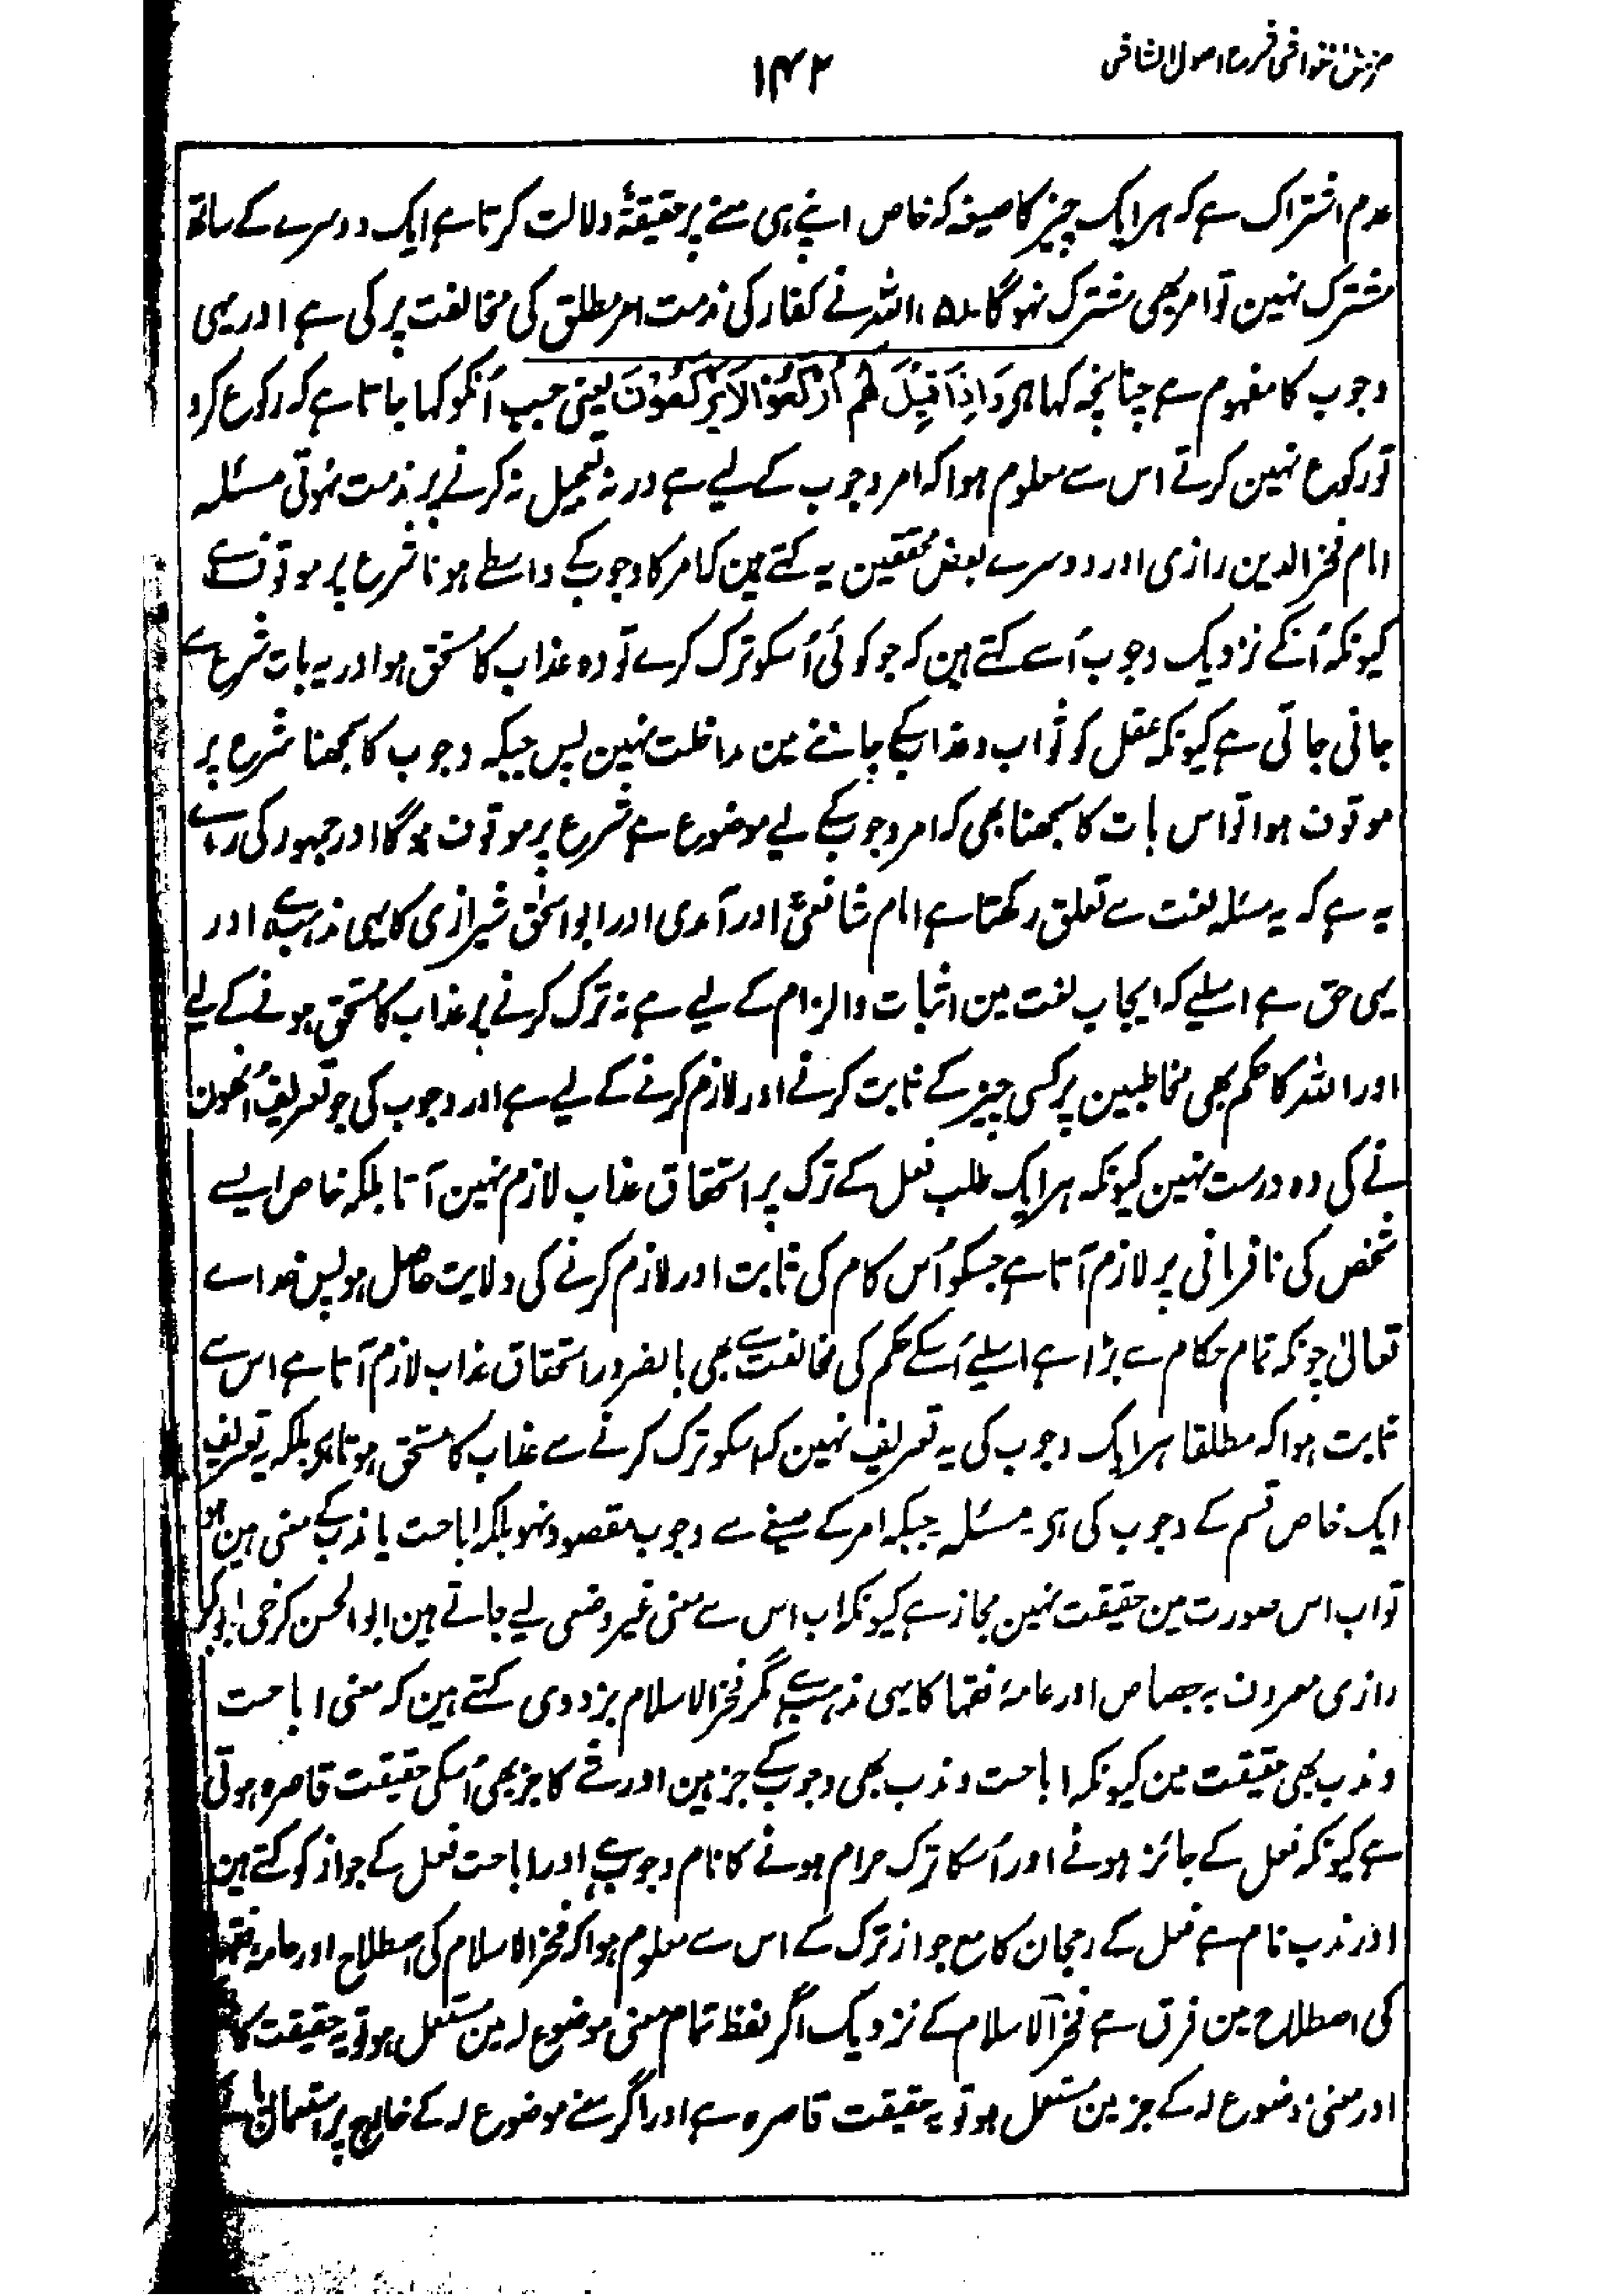 مزیل الغواشی شرح اصول الشاشی
۱۴۲
عدم اشتراک ہے کہ ہر ایک چیز کا صیغہ کہ خاص اپنے ہی معنے پر حقیقۃً دلالت کرتا ہے ایک دوسرے کے ساتھ
مشترک نہین تو امر بھی مشترک نہوگا ۔ (۵) اللہ نے کفار کی مذمت امر مطلق کی مخالفت پر کی ہے اور یہی
وجوب کا مفہوم ہے چنانچہ کہا ہی وَاِذَا قِیْلَ لَھُم اُرْکَعُوْا لَا یَرْکَعُوْنَ یعنی جب اُنکو کہا جاتا ہے کہ رکوع کرو
تو رکوع نہین کرتے اس سے معلوم ہوا کہ امر وجوب کے لیے ہے ورنہ تعمیل نہ کرنے پر مذمت نہوتی مسئلہ
امام فخر الدین رازی اور دوسرے بعض محققین یہ کہتے ہین کہ امر کا وجوب کے واسطے ہونا شرع پر موقوف ہے
کیونکہ اُنکے نزدیک وجوب اُسے کہتے ہین کہ جو کوئی اُسکو ترک کرے تو وہ عذاب کا مستحق ہو اور یہ بات شرع سے
جانی جاتی ہے کیونکہ عقل کو ثواب و عذاب کے جاننے مین مداخلت نہین پس جبکہ وجوب کا سمجھنا شرع پر
موقوف ہوا تو اس بات کا سمجھنا بھی کہ امر وجوب کے لیے موضوع ہے شرع پر موقوف ہوگا اور جمہور کی رائے
یہ ہے کہ یہ مسئلہ لغت سے تعلق رکھتا ہے امام شافعیؒ اور آمدی اور ابو اسحٰق شیرازی کا یہی مذہب ہے اور
یہی حق ہے اسلیے کہ ایجاب لغت مین اثبات و الزام کے لیے ہے نہ ترک کرنے پر عذاب کا مستحق ہونے کے لیے
اور اللہ کا حکم بھی مخاطبین پر کسی چیز کے ثابت کرنے اور لازم کرنے کے لیے ہے اور وجوب کی جو تعریف اُنھون
نے کی وہ درست نہین کیونکہ ہر ایک طلب فعل کے ترک پر استحقاق عذاب لازم نہین آتا بلکہ خاص ایسے
شخص کی نافرمانی پر لازم آتا ہے جسکو اُس کام کی ثابت اور لازم کرنے کی ولایت حاصل ہو پس خداے
تعالیٰ چونکہ تمام حکام سے بڑا ہے اسلیے اُسکے حکم کی مخالفت سے بھی بالضرور استحقاق عذاب لازم آتا ہے اس سے
ثابت ہوا کہ مطلقا ہر ایک وجوب کی یہ تعریف نہین کہ اسکو ترک کرنے سے عذاب کا مستحق ہوتا ہی بلکہ یہ تعریف
ایک خاص قسم کے وجوب کی ہی ۔ مسئلہ جبکہ امر کے صیغے سے وجوب مقصود نہو بلکہ اباحت یا ندب کے معنی مین ہو
تو اب اس صورت مین حقیقت نہین مجاز ہے کیونکہ اب اس سے معنی غیر وضعی لیے جاتے ہین ابو الحسن کرخی ابوبکر
رازی معروف بہ جصاص اور عامۂ فقہا کا یہی مذہب ہے مگر فخر الاسلام بزدوی کہتے ہین کہ معنی اباحت
و ندب بھی حقیقت مین کیونکہ اباحت و ندب بھی وجوب کے جز ہین اور شے کا جز بھی اُسکی حقیقت قاصرہ ہوتی
ہے کیونکہ فعل کے جائز ہونے اور اُسکا ترک حرام ہونے کا نام وجوب ہے اور اباحت فعل کے جواز کو کہتے ہین
اور ندب نام ہے فعل کے رجحان کا مع جواز ترک کے اس سے معلوم ہوا کہ فخر الاسلام کی اصطلاح اور عامۂ فقہا
کی اصطلاح مین فرق ہے فخر الاسلام کے نزدیک اگر لفظ تمام معنی موضوع لہ مین مستعمل ہو تو یہ حقیقت
اور معنی موضوع لہ کے جز مین مستعمل ہو تو یہ حقیقت قاصرہ ہے اور اگر معنے موضوع لہ کے خارج پر استعمال